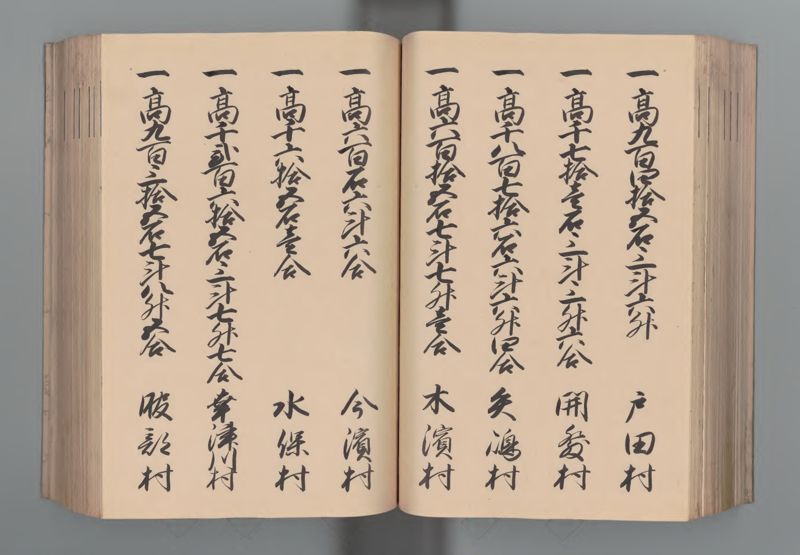 一 高九百四拾五石三斗六升 戸田村
一 高千七拾壱石三斗三升六合 開發村
一 高千八百七拾六石六斗六升四合 矢嶋村
一 高六百拾五石七斗七升壱合 木濱村
一 高六百石六斗六合 今濱村
一 高千六拾五石壱合 水保村
一 高千弐百六拾五石三斗七升七合 幸津川村
一 高九百三拾五石七斗八升五合 服部村